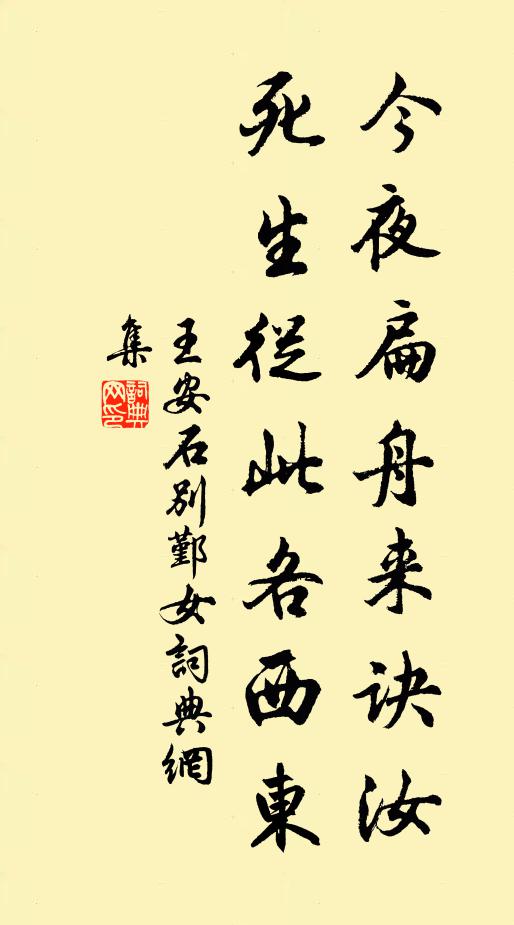 今夜扁舟来诀汝
死生從此各西東
王安石别鄞女詞典網
集
詞典
网印